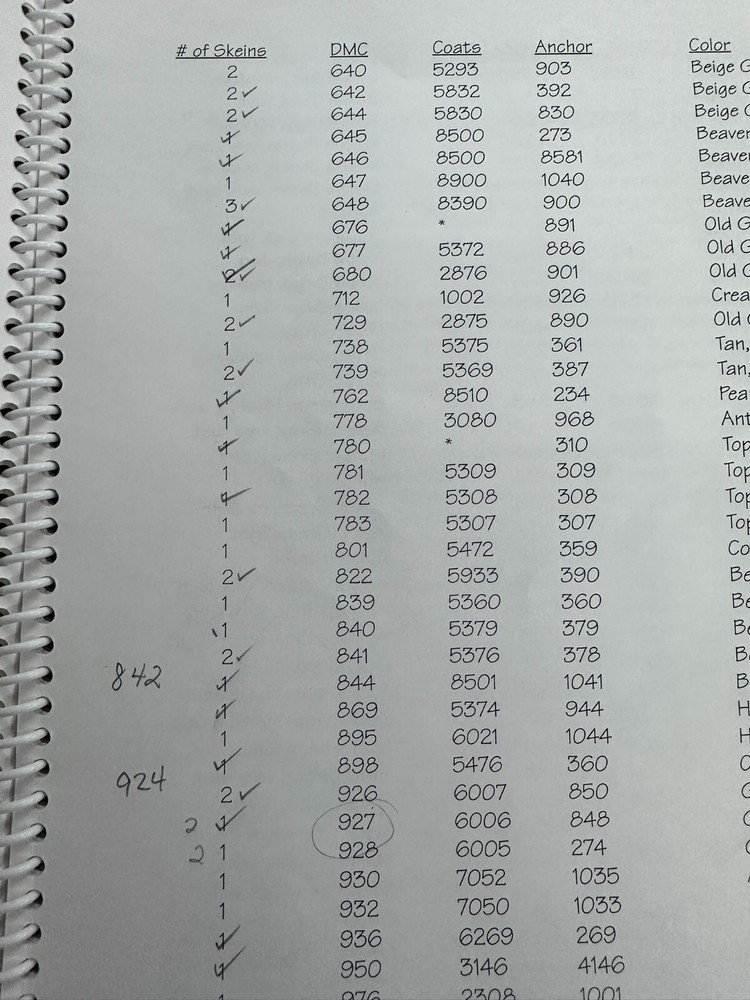 # of Skeins DMC Coats Anchor Color
2 640 5293 903 Beige G
2✓ 642 5832 392 Beige G
2✓ 644 5830 830 Beige G
1✓ 645 8500 273 Beaver
1✓ 646 8500 8581 Beaver
1 647 8900 1040 Beave
3✓ 648 8390 900 Beave
1✓ 676 * 891 Old G
1✓ 677 5372 886 Old G
2✓ 680 2876 901 Old G
1 712 1002 926 Crea
2✓ 729 2875 890 Old G
1 738 5375 361 Tan,
2✓ 739 5369 387 Tan,
1✓ 762 8510 234 Pea
1 778 3080 968 Ant
1✓ 780 * 310 Top
1 781 5309 309 Top
1✓ 782 5308 308 Top
1 783 5307 307 Top
1 801 5472 359 Co
2✓ 822 5933 390 Be
1 839 5360 360 Be
1 840 5379 379 Be
2✓ 841 5376 378 B
842 1✓ 844 8501 1041 B
1✓ 869 5374 944 H
1 895 6021 1044 H
1✓ 898 5476 360 C
924 2✓ 926 6007 850 G
2 1✓ 927 6006 848 G
2 1 928 6005 274 G
1 930 7052 1035
1 932 7050 1033
1✓ 936 6269 269
1✓ 950 3146 4146
1 976 2308 1001